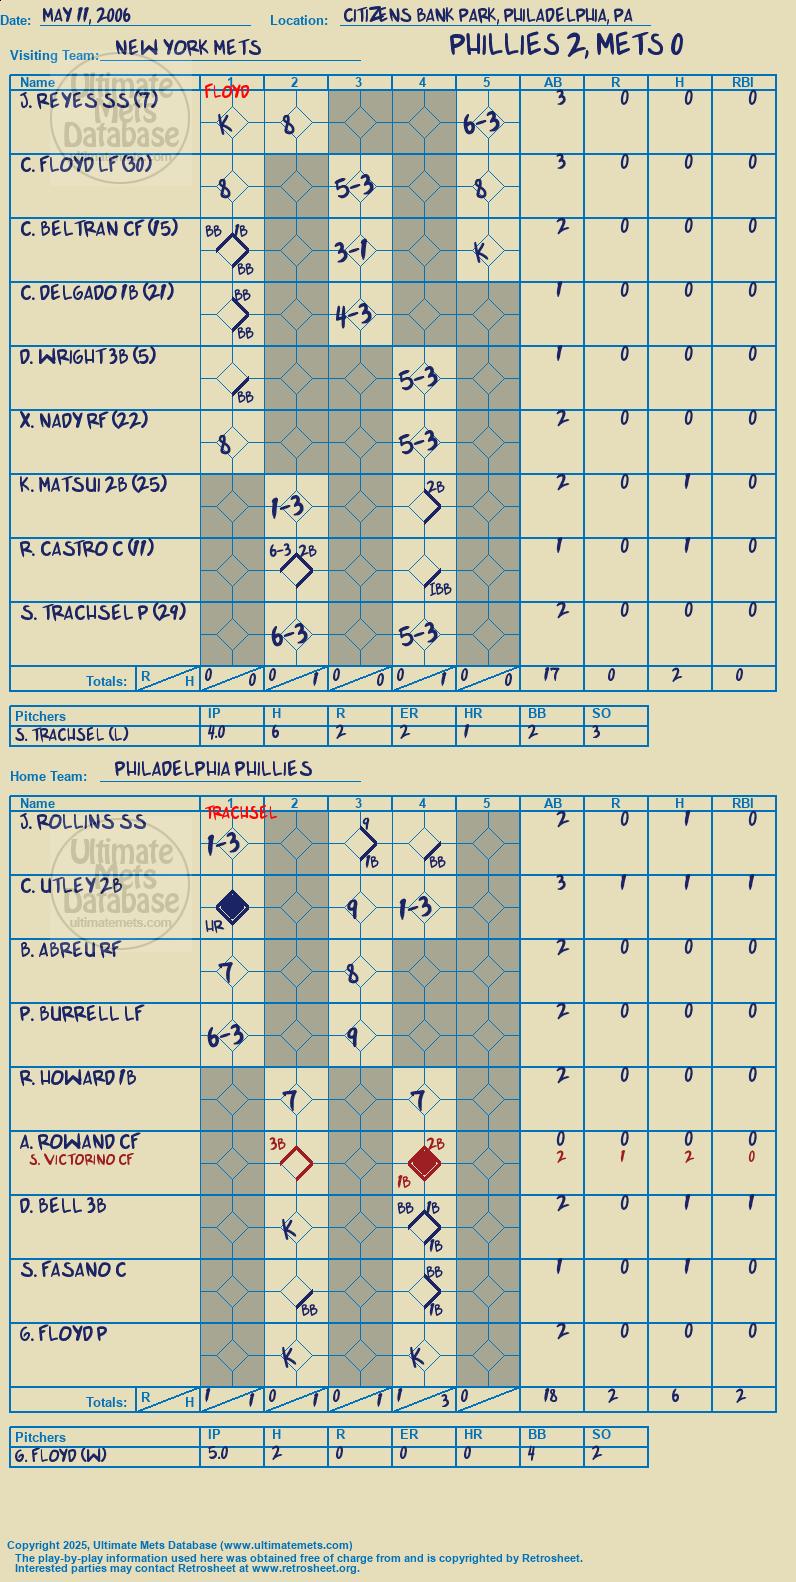 Date: MAY 11, 2006 Location: CITIZENS BANK PARK, PHILADELPHIA, PA
Visiting Team: NEW YORK METS PHILLIES 2, METS 0
Ultimate Mets Database ultimatemets.com
Name 1 2 3 4 5 AB R H RBI
FLOYD
J. REYES SS (7) K 8 6-3 3 0 0 0
C. FLOYD LF (30) 8 5-3 8 3 0 0 0
C. BELTRAN CF (15) BB 1B BB 3-1 K 2 0 0 0
C. DELGADO 1B (21) BB BB 4-3 1 0 0 0
D. WRIGHT 3B (5) BB 5-3 1 0 0 0
X. NADY RF (22) 8 5-3 2 0 0 0
K. MATSUI 2B (25) 1-3 2B 2 0 1 0
R. CASTRO C (11) 6-3 2B IBB 1 0 1 0
S. TRACHSEL P (29) 6-3 5-3 2 0 0 0
Totals: R H 0 0 0 1 0 0 0 1 0 0 17 0 2 0
Pitchers IP H R ER HR BB SO
S. TRACHSEL (L) 4.0 6 2 2 1 2 3
Home Team: PHILADELPHIA PHILLIES
Name 1 2 3 4 5 AB R H RBI
TRACHSEL
J. ROLLINS SS 1-3 9 1B BB 2 0 1 0
C. UTLEY 2B HR 9 1-3 3 1 1 1
Ultimate Mets Database ultimatemets.com
B. ABREU RF 7 8 2 0 0 0
P. BURRELL LF 6-3 9 2 0 0 0
R. HOWARD 1B 7 7 2 0 0 0
A. ROWAND CF 0 0 0 0
S. VICTORINO CF 3B 2B 1B 2 1 2 0
D. BELL 3B K BB 1B 1B 2 0 1 1
S. FASANO C BB BB 1B 1 0 1 0
G. FLOYD P K K 2 0 0 0
Totals: R H 1 1 0 1 0 1 1 3 0 18 2 6 2
Pitchers IP H R ER HR BB SO
G. FLOYD (W) 5.0 2 0 0 0 4 2
Copyright 2025, Ultimate Mets Database (www.ultimatemets.com)
The play-by-play information used here was obtained free of charge from and is copyrighted by Retrosheet.
Interested parties may contact Retrosheet at www.retrosheet.org.